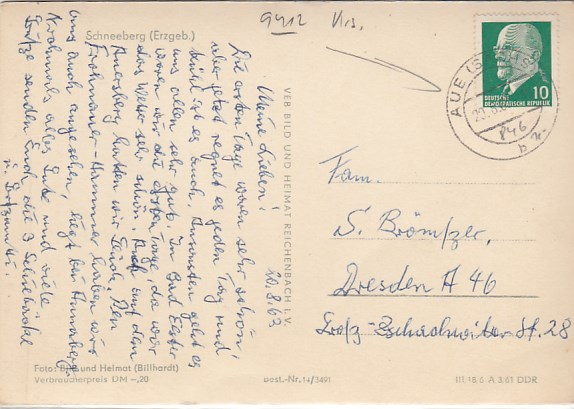 Schneeberg (Erzgeb.)
9412 Krs.
20.8.63
Meine Lieben!
Die ersten Tage waren sehr schön,
aber jetzt regnet es jeden Tag und
kühl ist es auch. Ansonsten geht es
uns allen sehr gut. In Bad Elster
waren wir die ersten Tage, da war
das Wetter sehr schön. Auch auf dem
Auersberg hatten wir Glück. Den
Frohnauer-Hammer haben wir
uns auch angesehen, liegt bei Annaberg.
Nochmals alles Gute und viele
Grüße senden Euch die 3
u.
VEB BILD UND HEIMAT REICHENBACH I. V.
AUE
20.8.
DEUTSCHE
DEMOKRATISCHE REPUBLIK
10
846
Fam.
S. Brömßer,
Dresden A 46
Groß-Zschachwitzer St. 28
Foto: Bild und Heimat (Billhardt)
Verbraucherpreis DM -,20
Best.-Nr. 14/3491
III.18.6 A 3.61 DDR